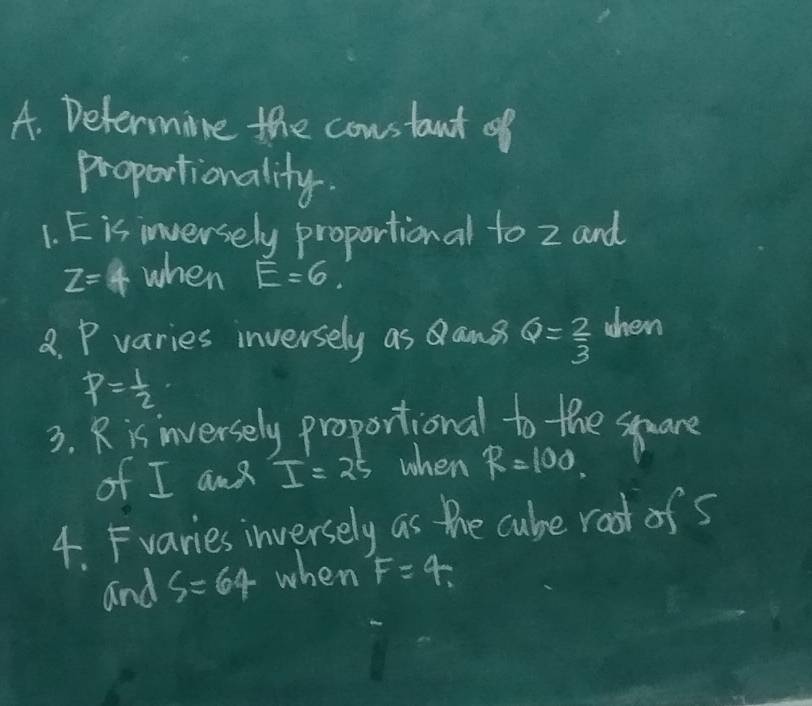 A. Determine the constant of
proportionality.
1. E is inversely proportional to z and
z=4 when E=6.
2. P varies inversely as Q and Q=2/3 when
P=1/2.
3. R is inversely proportional to the square
of I and I=25 when R=100.
4. F varies inversely as the cube root of S
and S=64 when F=4.